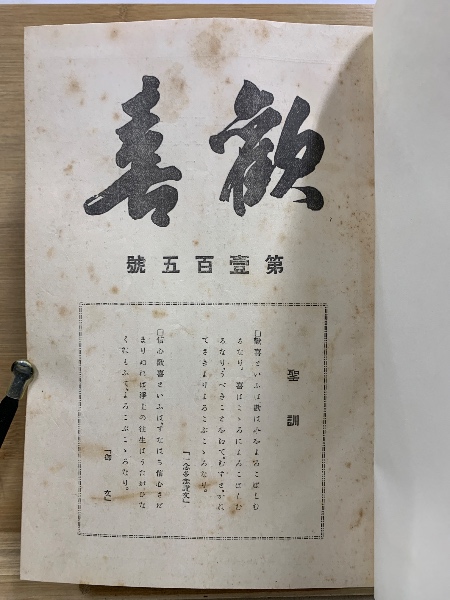 歡喜
第壹百五號
聖訓
□歡喜といふは歡はみをよろこばしむ
るなり。喜はこゝろによろこばしむ
るなり、うべきことをえてむずと、かね
てさきよりよろこぶこゝろなり。
『一念多念證文』
□信心歡喜といふは、すなはち信心さだ
まりぬれば淨土の往生はうたがひな
くおもふてよろこぶこゝろなり。
『御文』